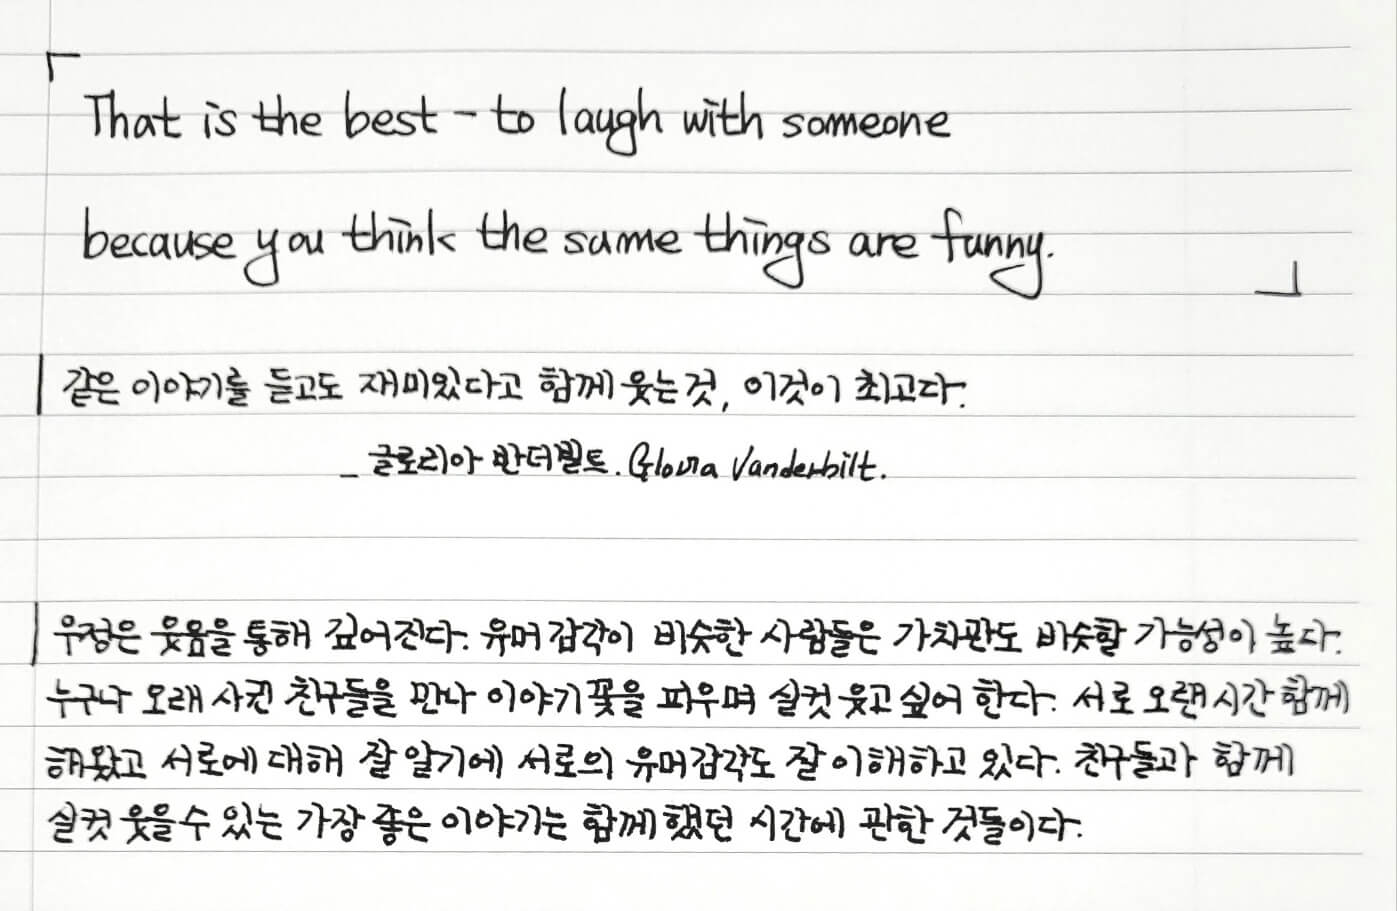 「That is the best - to laugh with someone
because you think the same things are funny.」
같은 이야기를 듣고도 재미있다고 함께 웃는것, 이것이 최고다.
_ 글로리아 반더빌트. Gloria Vanderbilt.
우정은 웃음을 통해 깊어진다. 유머감각이 비슷한 사람들은 가치관도 비슷할 가능성이 높다.
누구나 오래 사귄 친구들을 만나 이야기꽃을 피우며 실컷 웃고 싶어 한다. 서로 오랜시간 함께
해왔고 서로에 대해 잘 알기에 서로의 유머감각도 잘 이해하고 있다. 친구들과 함께
실컷 웃을수 있는 가장 좋은 이야기는 함께했던 시간에 관한 것들이다.